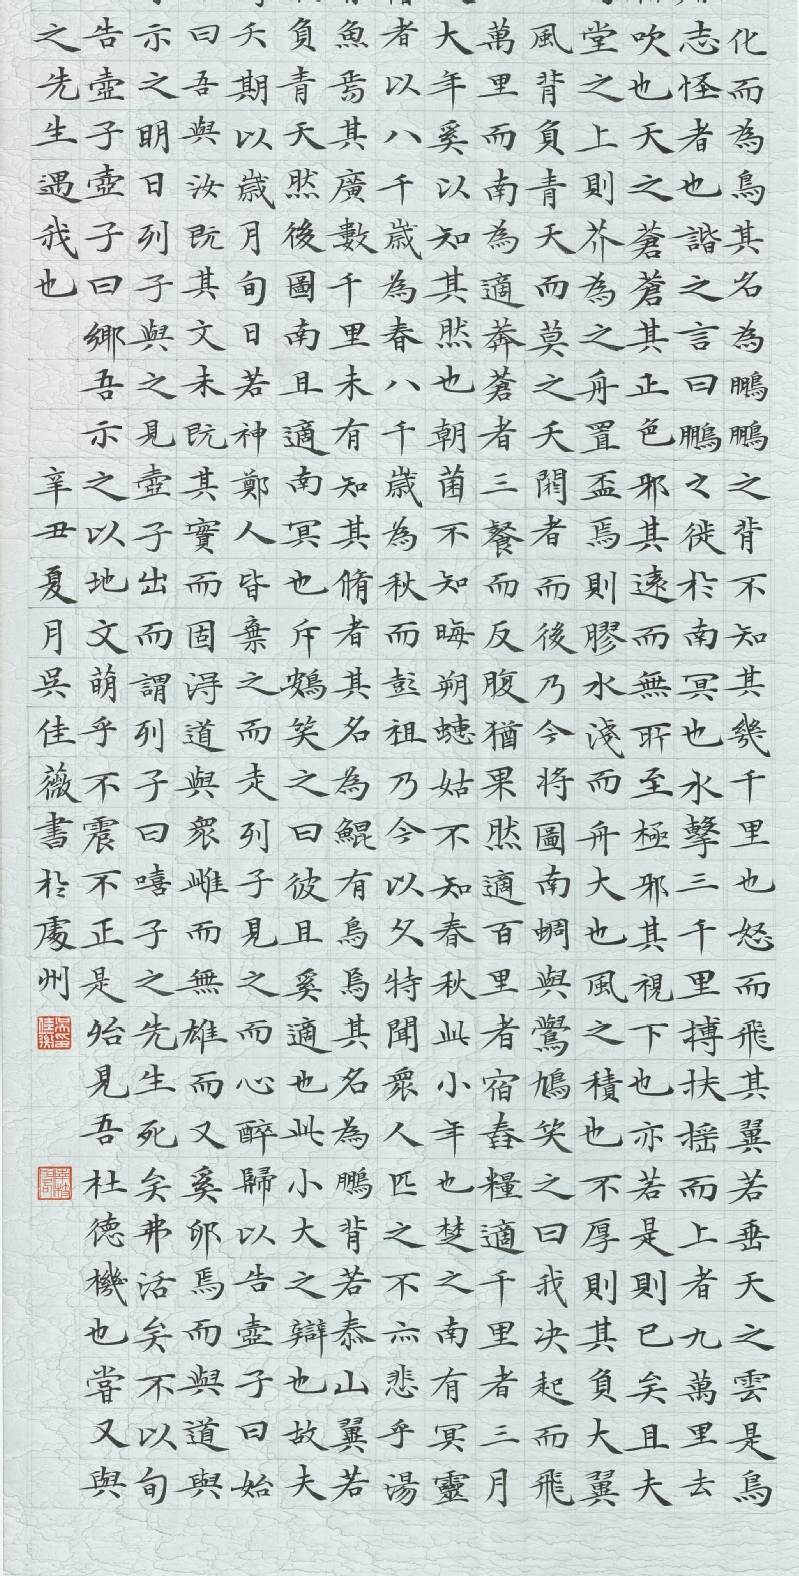 化而為鳥其名為鵬鵬之背不知其幾千里也怒而飛其翼若垂天之雲是鳥
志怪者也諧之言曰鵬之徙於南冥也水擊三千里搏扶搖而上者九萬里去
吹也天之蒼蒼其正色邪其遠而無所至極邪其視下也亦若是則已矣且夫
堂之上則芥為之舟置盃焉則膠水淺而舟大也風之積也不厚則其負大翼
風背負青天而莫之夭閼者而後乃今將圖南蜩與鷽鳩笑之曰我決起而飛
萬里而南為適莽蒼者三餐而反腹猶果然適百里者宿舂糧適千里者三月
大年奚以知其然也朝菌不知晦朔蟪蛄不知春秋此小年也楚之南有冥靈
者以八千歲為春八千歲為秋而彭祖乃今以久特聞眾人匹之不亦悲乎湯
魚焉其廣數千里未有知其脩者其名為鯤有鳥焉其名為鵬背若泰山翼若
負青天然後圖南且適南冥也斥鴳笑之曰彼且奚適也此小大之辯也故夫
夭期以歲月旬日若神鄭人皆棄之而走列子見之而心醉歸以告壺子曰始
曰吾與汝既其文未既其實而固得道與眾雌而無雄而又奚卵焉而與道與
示之明日列子與之見壺子出而謂列子曰嘻子之先生死矣弗活矣不以旬
告壺子壺子曰鄉吾示之以地文萌乎不震不正是殆見吾杜德機也嘗又與
之先生遇我也
辛丑夏月吳佳薇書於處州